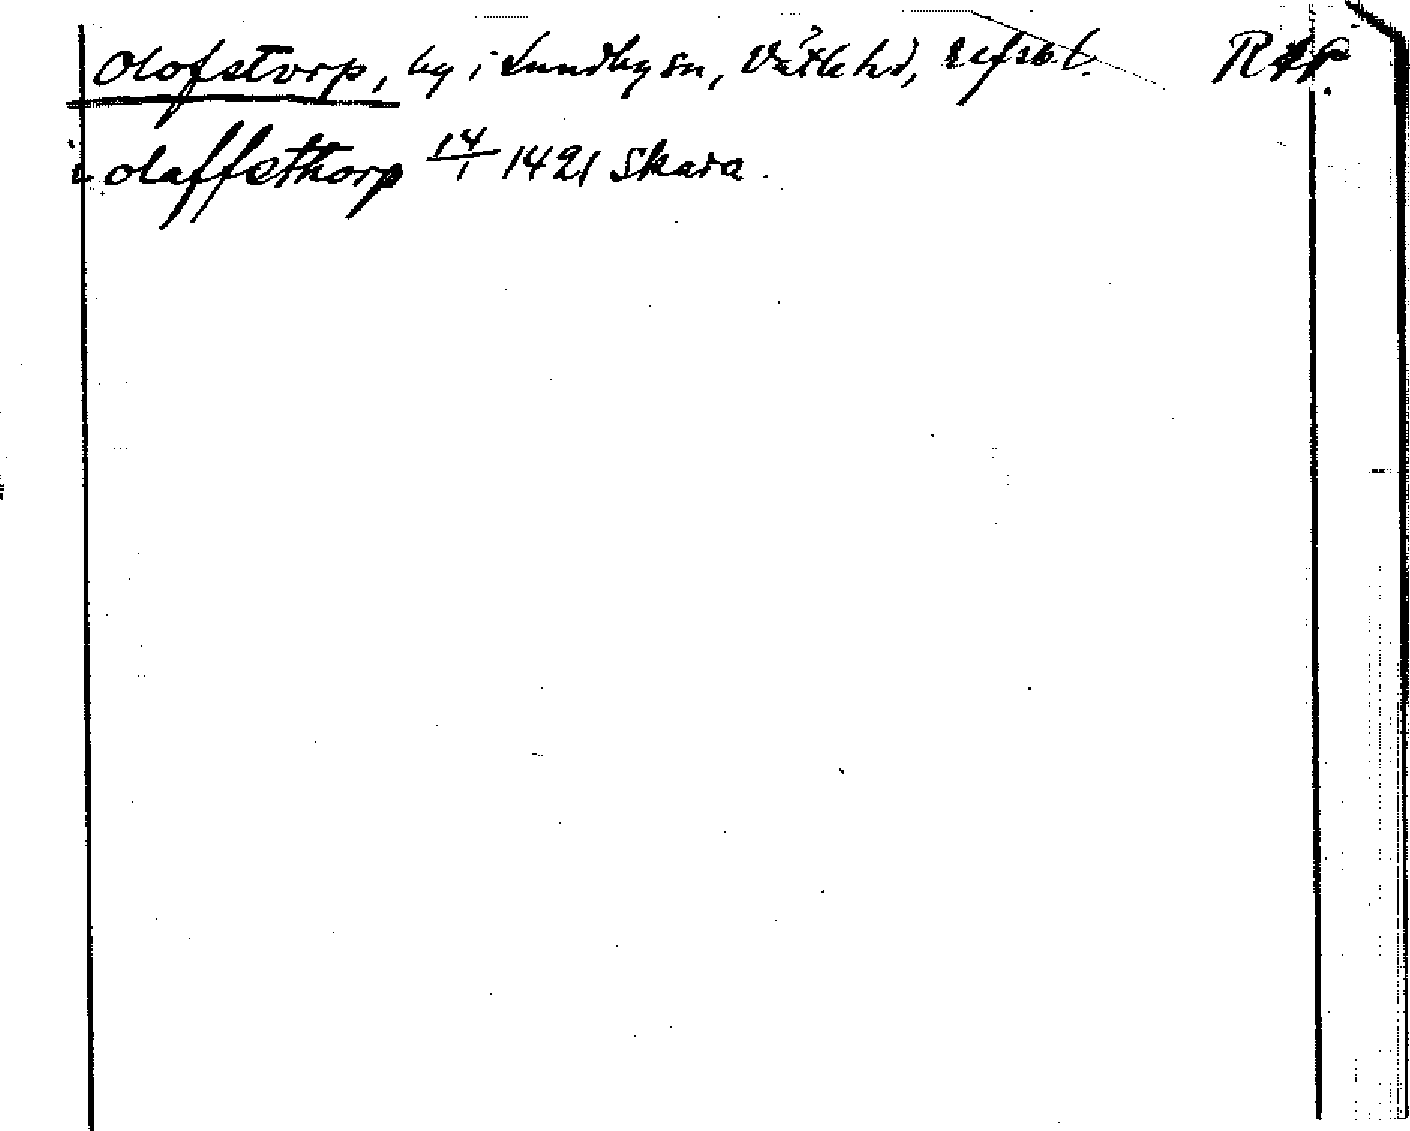 Olofstorp, by i Lundby sn, Vätle hd, Elfsb. l. RAP.
i olaffsthorp 14/1 1421 Skara.